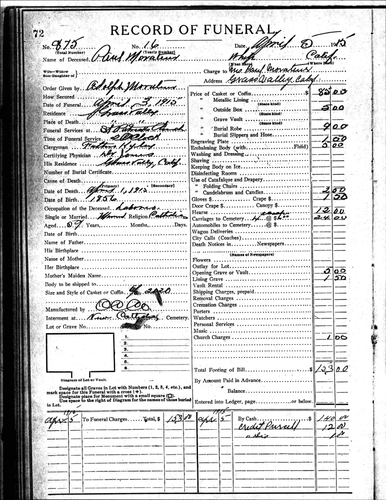 72
RECORD OF FUNERAL
No. 875 No. 16 Date, April 5 1915
(Total Number) (Yearly Number)
Name of Deceased, Paul White Calif.
Charge to Mrs Paul
Address Grass Valley, Calif
Order Given by Adolph
How Secured
Date of Funeral April 3, 1915
Residence Grass Valley
Place of Death
Funeral Services at St Patricks Church
Time of Funeral Service
Clergyman Father
Certifying Physician Dr Jones
His Residence Grass Valley, Calif.
Number of Burial Certificate
Cause of Death
(Secondary)
Date of Death April 1, 1915
Date of Birth 1856
Occupation of the Deceased
Single or Married Religion Catholic
Aged 59 Years, Months, Days
Date of Birth
Name of Father
His Birthplace
Name of Mother
Her Birthplace
Mother's Maiden Name
Body to be shipped to
Size and Style of Casket or Coffin
Manufactured by
Interment at Cemetery.
Lot or Grave No.
Diagram of Lot or Vault.
Designate all Graves in Lot with Numbers (1, 2, 3, 4, etc.), and
mark space for this Funeral with a cross (+).
Designate place for Monument with a small square (□).
Use space to right of Diagram for the names of those buried
in Lot.
Price of Casket or Coffin 85 00
" Metallic Lining
(State kind)
" Outside Box 5 00
(State kind)
" Grave Vault
(State kind)
" Burial Robe 9 00
(State kind)
" Burial Slippers and Hose
Engraving Plate 1 50
Embalming Body (with Fluid) 5 00
Washing and Dressing
Shaving
Keeping Body on Ice
Disinfecting Rooms
Use of Catafalque and Drapery
" Folding Chairs
" Candelabrum and Candles 2 50
Gloves $ Crape $ 1 50
Door Crape $ Canopy $
Hearse 12 00
Carriages to Cemetery @ $ 24 00
Automobiles to Cemetery @ $
Wagon Deliveries
City Calls (Coaches)
Death Notices in Newspapers
(Names of Newspapers)
Flowers
Outlay for Lot
Opening Grave or Vault 5 00
Lining Grave or Vault 1 50
Vault Rental
Shipping Charges, prepaid
Removal Charges
Cremation Charges
Porters
Watchers
Personal Services
Music
Church Charges 1 00
Total Footing of Bill $ 153 00
By Amount Paid in Advance
" Balance
Entered into Ledger, page or below.
Apr 5 To Funeral Charges, Total, $ 153 00 Apr 5 By Cash 140 00
Credit 12 00